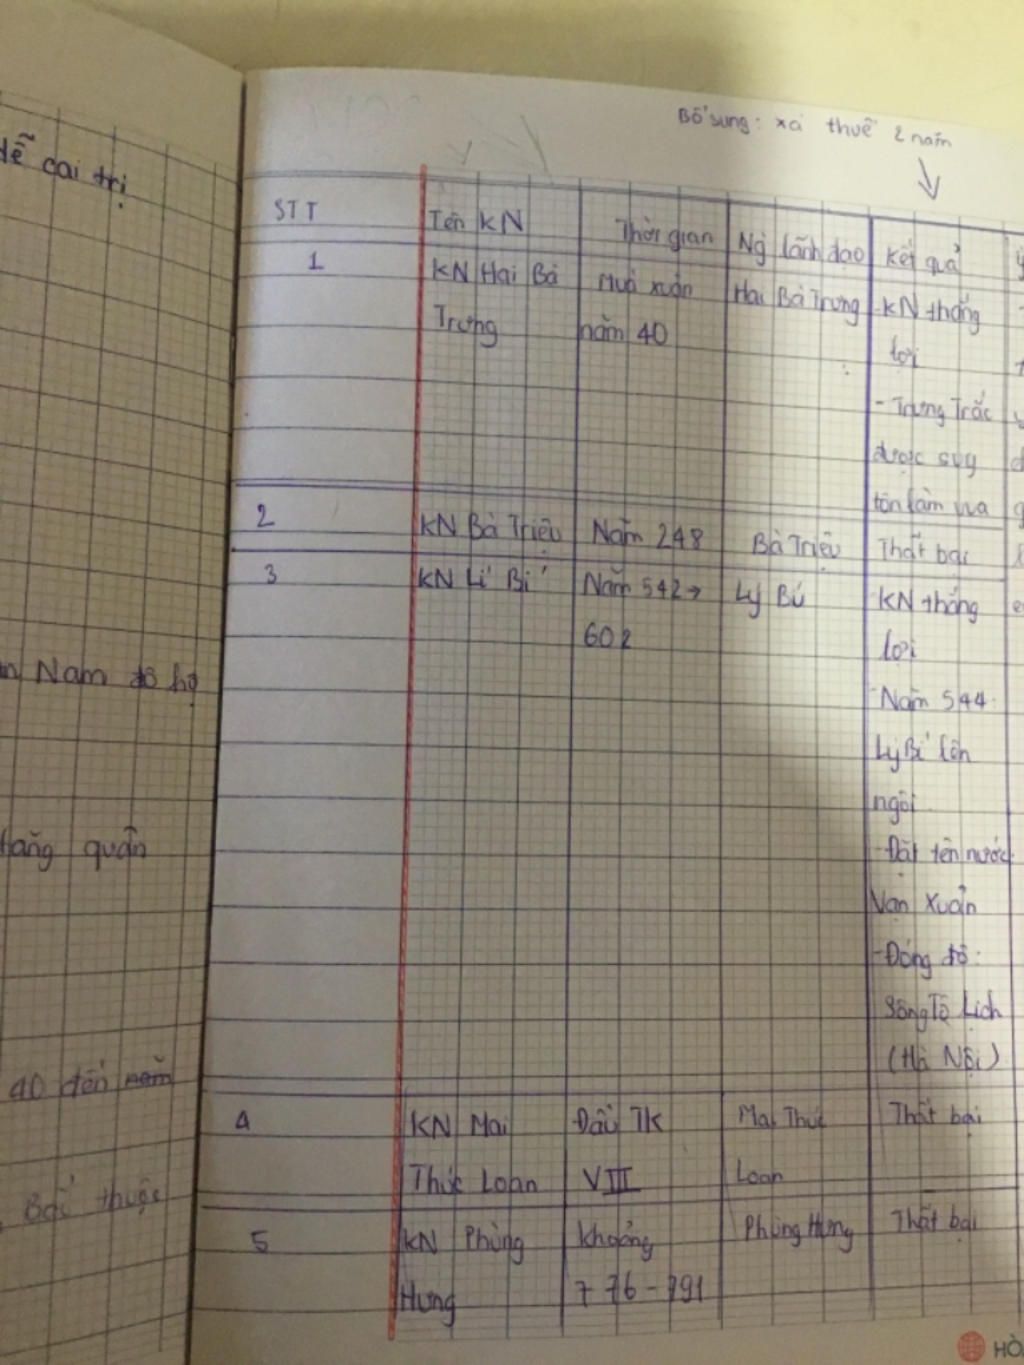 Bổ sung: xá thuế 2 năm
để cai trị
STT Tên KN Thời gian Ng lãnh đạo Kết quả
1 KN Hai Bà Mùa xuân Hai Bà Trưng -KN thắng
Trưng năm 40 lợi
- Trưng Trắc
được suy
tôn làm vua
2 KN Bà Triệu Năm 248 Bà Triệu Thất bại
3 KN Lí Bí Năm 542→ Lý Bí KN thắng
602 lợi
Nam đô hộ
-Năm 544
Lý Bí lên
ngôi
quận
-Đặt tên nước
Vạn Xuân
-Đóng đô:
Sông Tô Lịch
(Hà Nội)
40 đến năm
4 KN Mai Đầu TK Mai Thúc Thất bại
Thúc Loan VIII Loan
Bắc thuộc
5 KN Phùng Khoảng Phùng Hưng Thất bại
Hưng 776-791